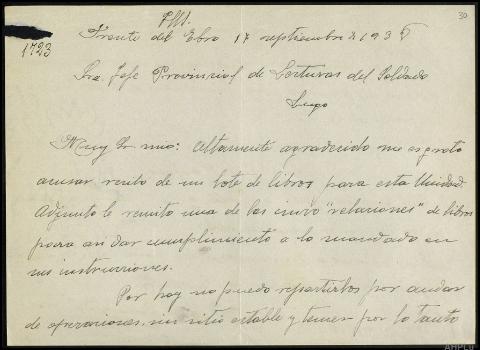 30
1723
Frente del Ebro 17 septiembre de 1938
Sra. Jefe Provincial de Lecturas del Soldado
Lugo
Muy Sr mio: Altamente agradecido me es grato
acusar recibo de un lote de libros para esta Unidad.
Adjunto le remito una de las cinco "relaciones" de libros
para asi dar cumplimiento a lo mandado en
sus instrucciones.
Por hoy no puedo repartirlos por andar
de operaciones, sin sitio estable y tener por lo tanto
AHPLU